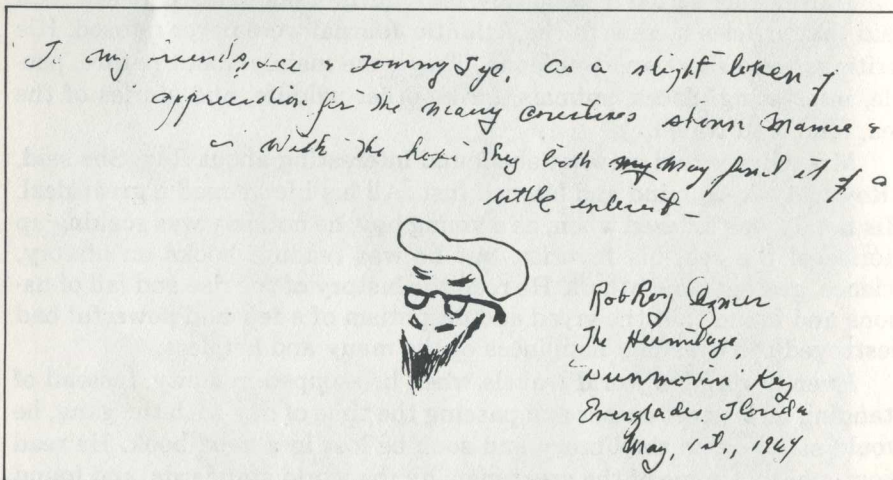 To my friends, Lee & Tommy Tye, as a slight token of
appreciation for the many courtesies shown Mamie &
with the hope they both my may find it of a
little interest —
RobRoy Ozmer
The Hermitage,
Dunmovin' Key
Everglades Florida
May, 1st., 1944